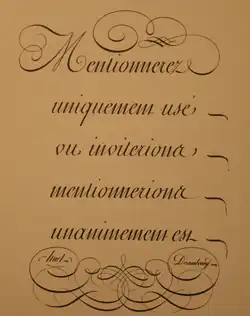 Mentionnerez
uniquement usé
ou inviterions
mentionnerions
unanimement est